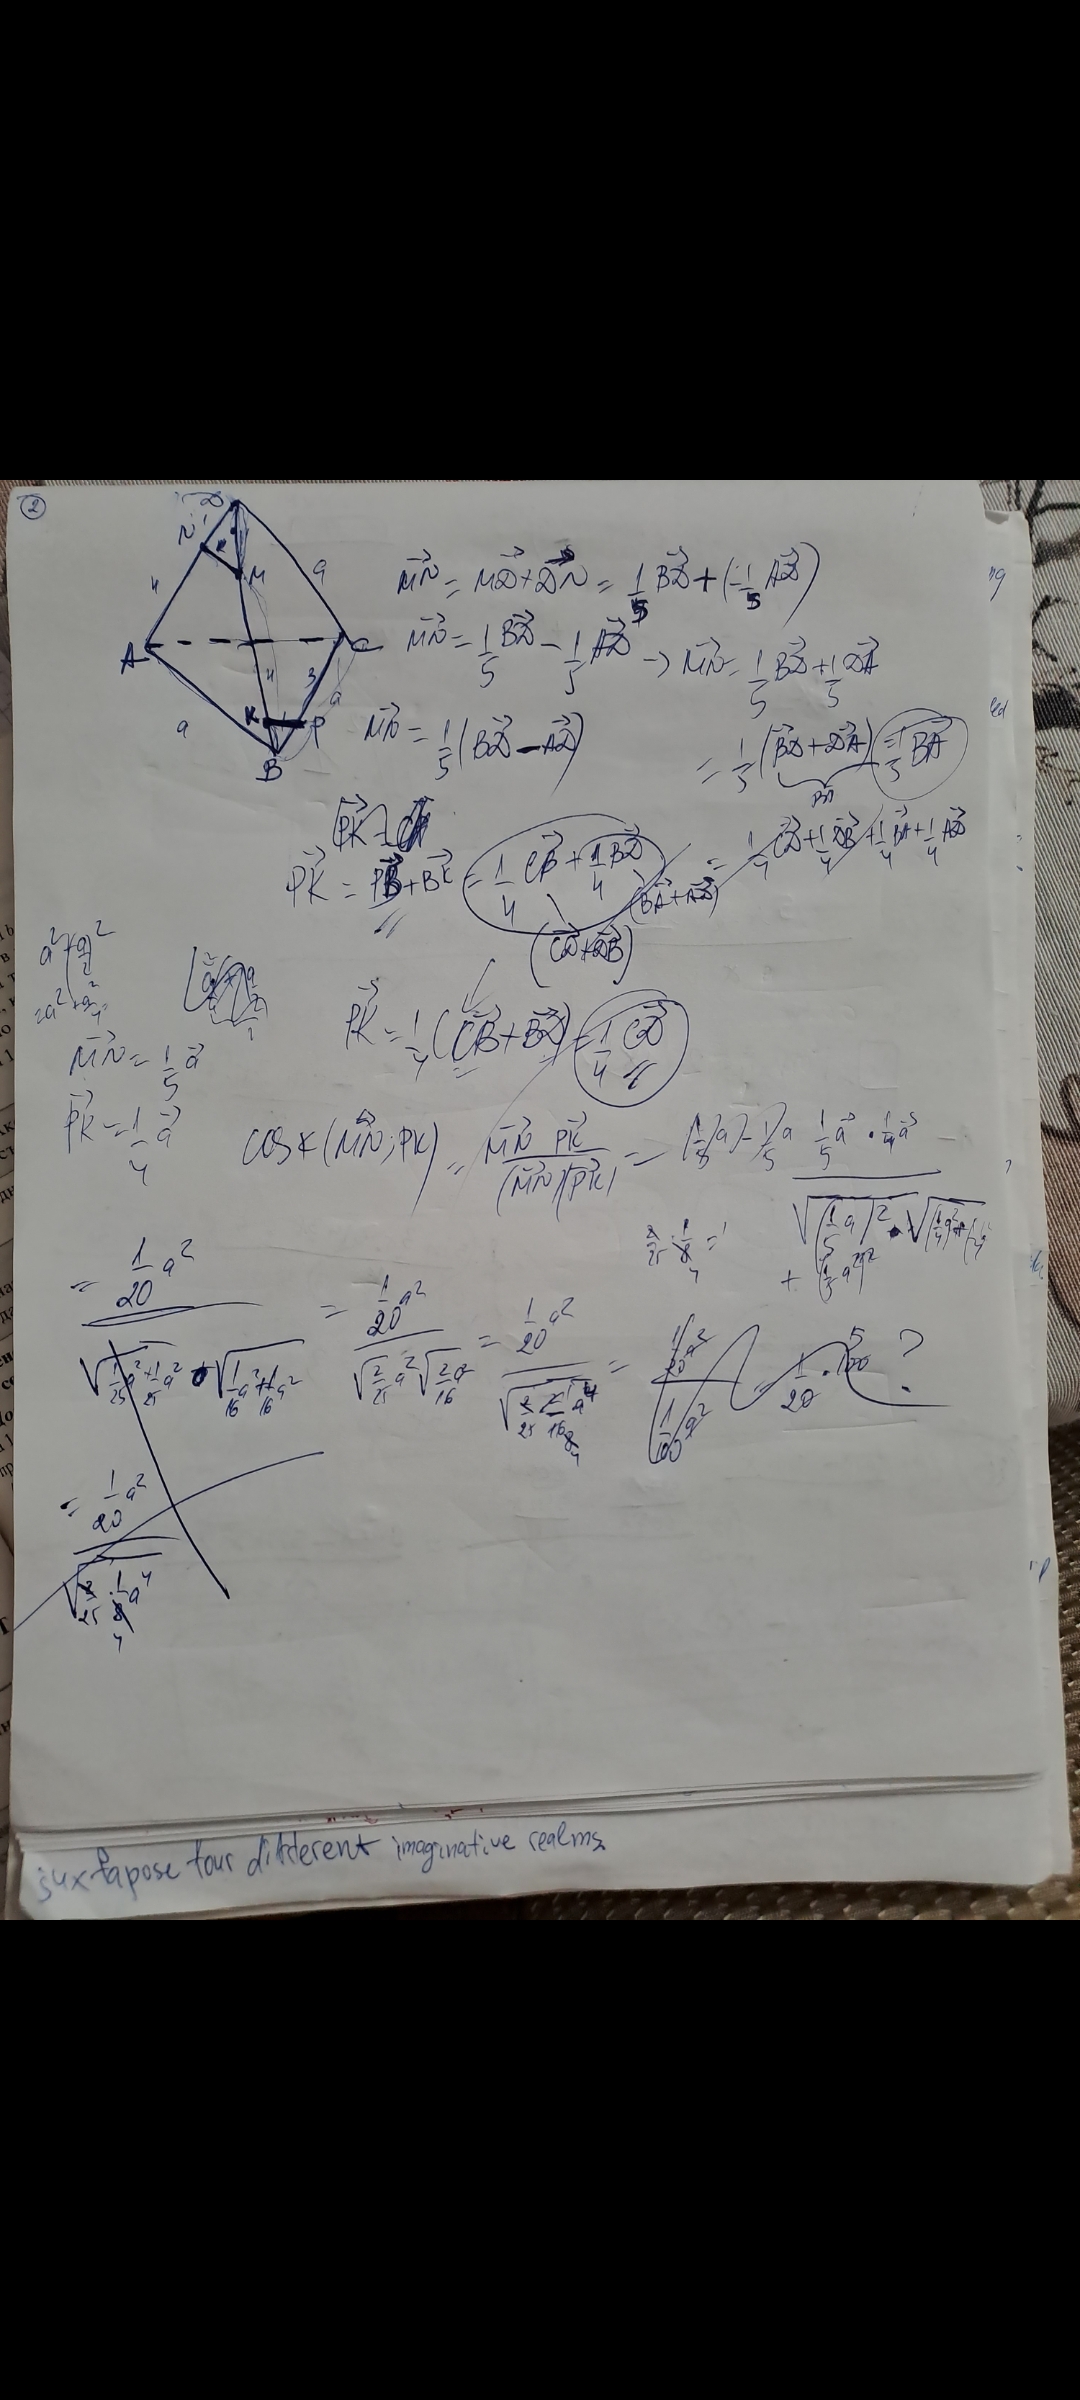 2
D
N
1
M
4
a
A
C
4
3
a
a
K
P
B
MN = MD + DN = 1/5 BD + (-1/5 AD)
MN = 1/5 BD - 1/5 AD → MN = 1/5 BD + 1/5 DA
MN = 1/5 (BD - AD)
= 1/5 (BD + DA) = 1/5 BA
BA
PK = PB + BK = 1/4 CB + 1/4 BD = 1/4 CD + 1/4 DB + 1/4 BA + 1/4 AD
(BA + AD)
(CD + DB)
PK = 1/4 (CB + BD) = 1/4 CD
MN = 1/5 a
PK = 1/4 a
cos ∠(MN; PK) = MN PK / |MN| |PK| =
1/5 a · 1/4 a
= 1/20 a² / √(1/25 a² + 1/25 a²) · √(1/16 a² + 1/16 a²)
= 1/20 a² / √(2/25 a²) √(2/16 a²) = 1/20 a² / = 1/20 a² / 1/100 a² = 1/20 · 100 ?
= 1/20 a² / √(2/25 · 1/8 a⁴)
4
juxtapose four different imaginative realms